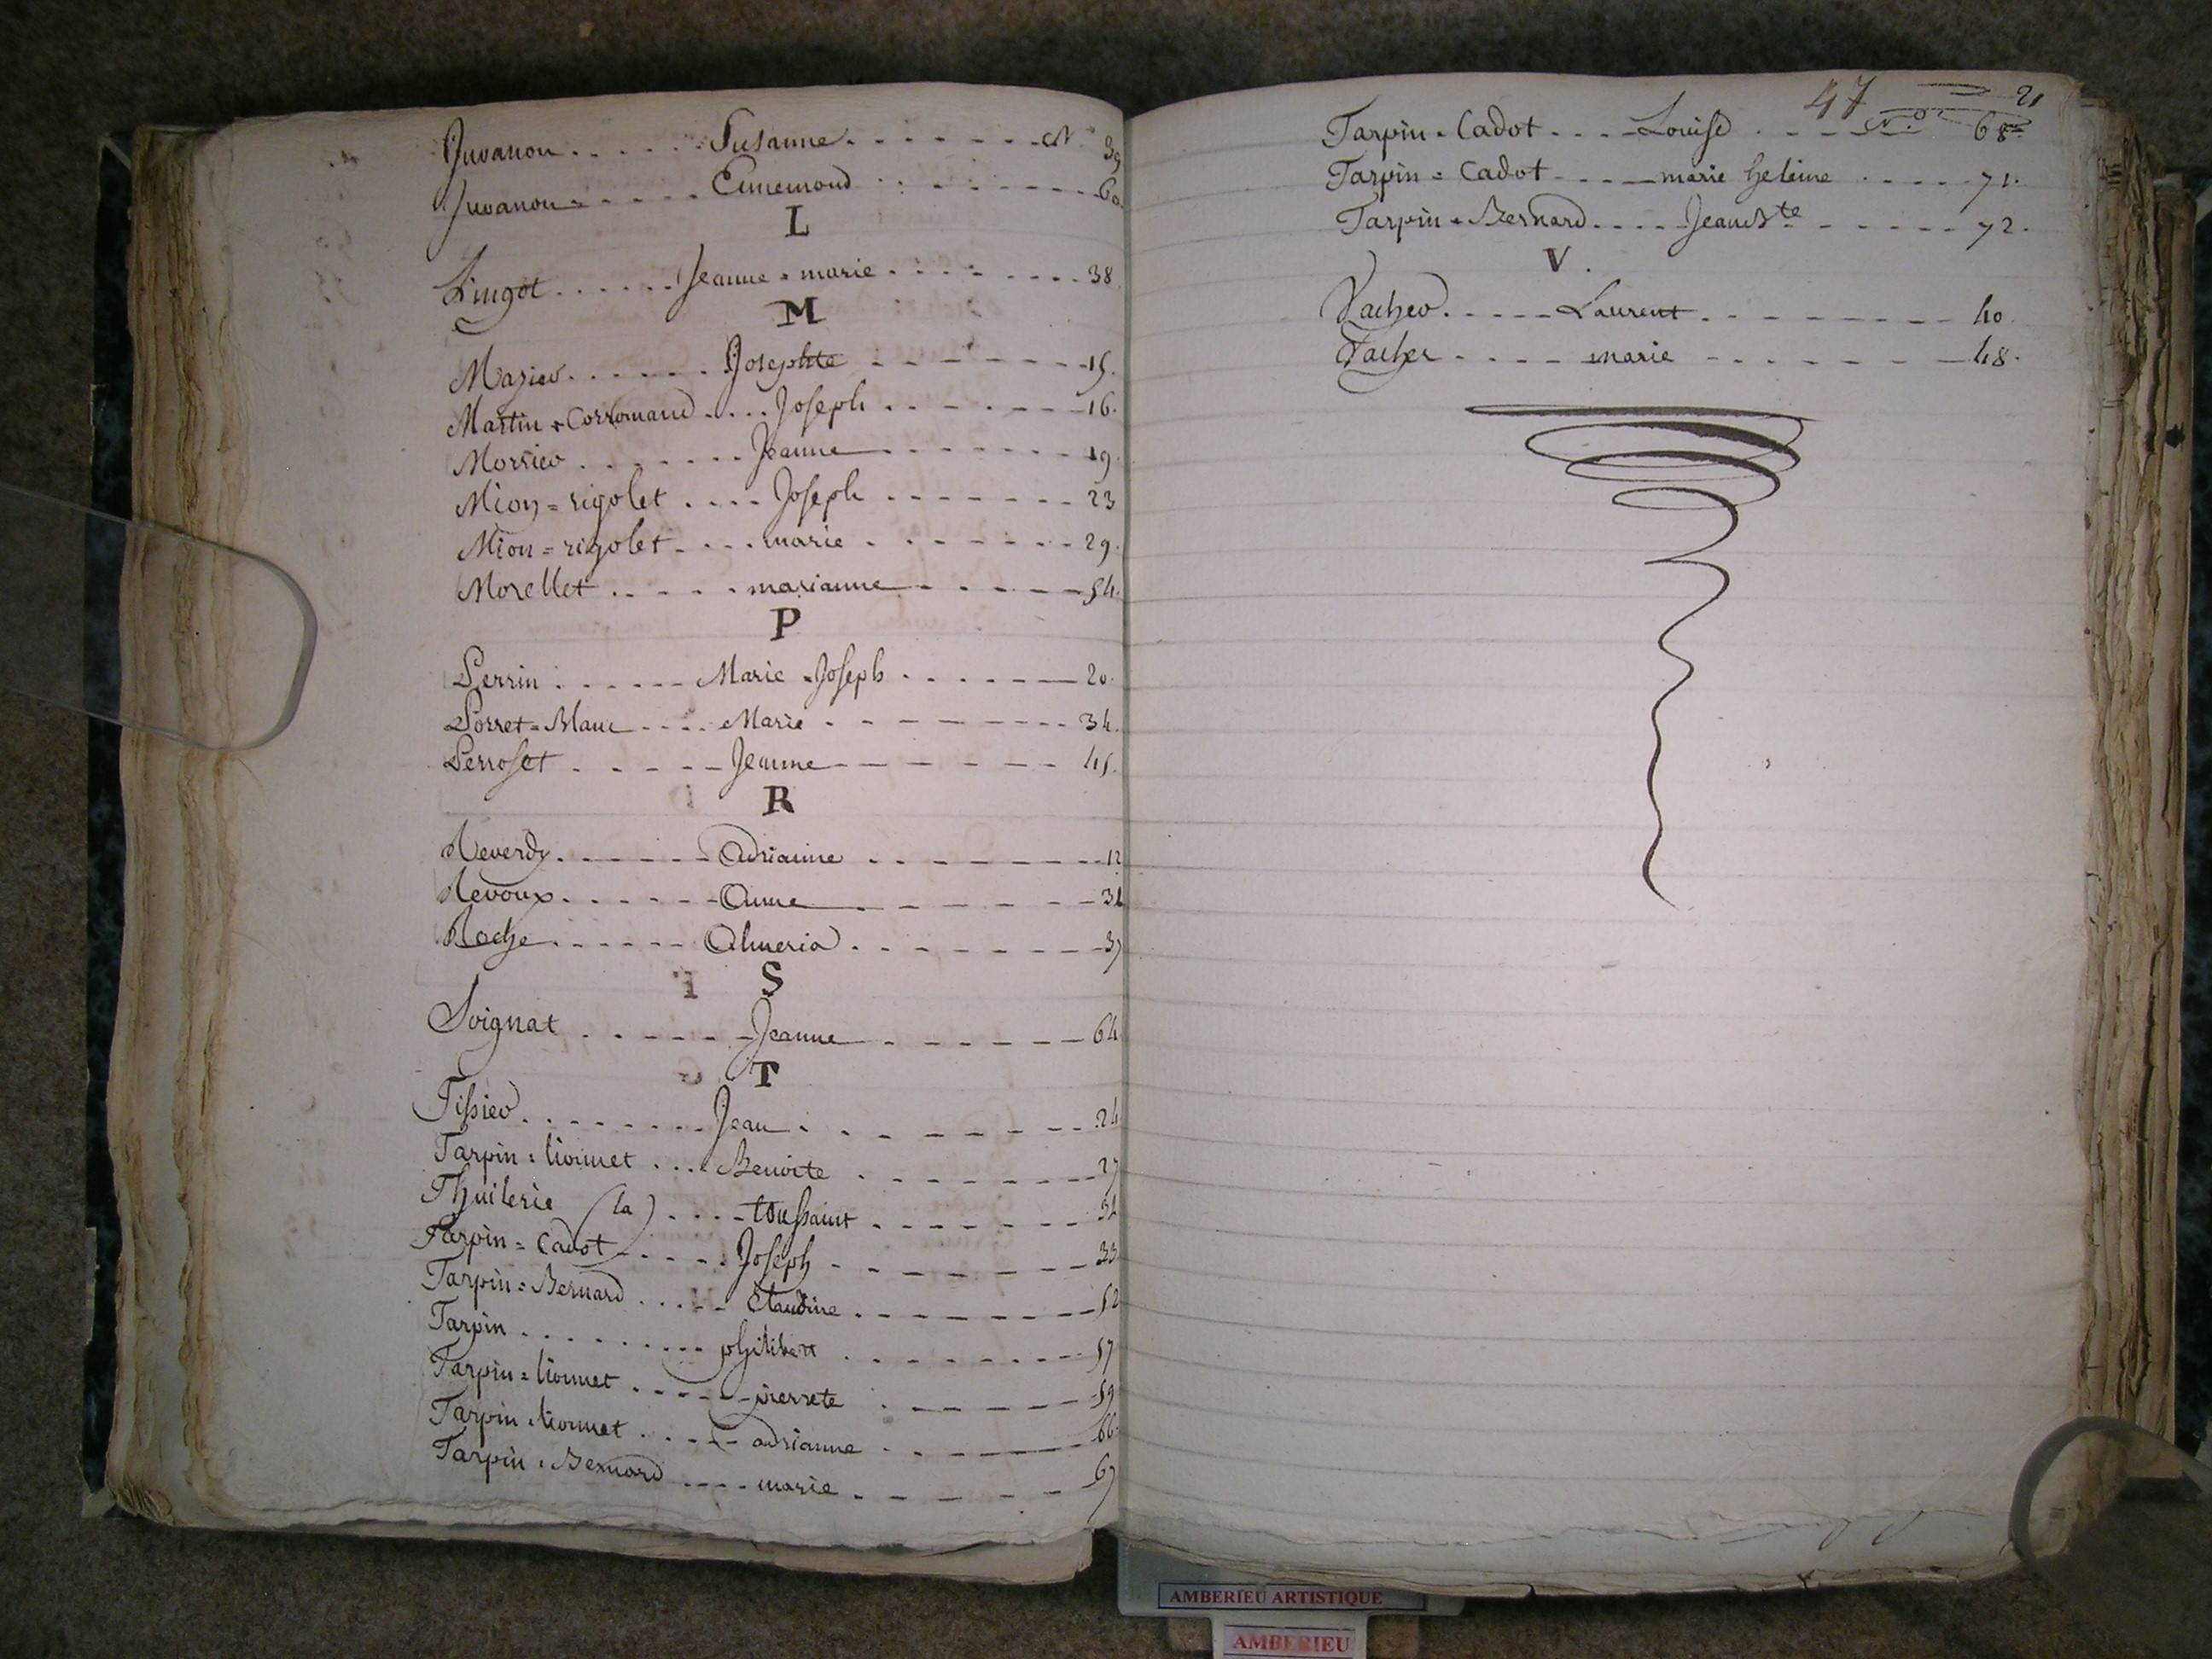 Juvanon . . . . . Susanne . . . . . . . N. 39
Juvanon . . . . . Ennemond . . . . . . . 60
L
Lingot . . . . . . Jeanne = marie . . . . . . . . 38
M
Mazier . . . . . . Josephte . . . . . . . 15.
Martin = Corromand . . . . Joseph . . . . . . . 16.
Morrier . . . . . . . Jeanne . . . . . . . 19.
Mion = rigolet . . . . Joseph . . . . . . . 23
Mion = rigolet . . . . marie . . . . . . 29.
Morellet . . . . . marianne . . . . . 54.
P
Perrin . . . . . . Marie = Joseph . . . . . . 20.
Porret = Blanc . . . . Marie . . . . . . . 34.
Perroset . . . . . Jeanne . . . . . . 45.
R
Reverdy . . . . . . Adrianne . . . . . . . 12
Revoux . . . . . . Anne . . . . . .
Roche . . . . . . . . . . . . . 37
S
Soignat . . . . . . Jeanne . . . . . . 64
T
Tissier . . . . . . . . Jean . . . . . . . 24
Tarpin = lionnet . . . . Benoite . . . . . . . 27
Thuilerie (la) . . . . toussaint . . . . . .
Tarpin = Cadot . . . . . Joseph . . . . . . 33
Tarpin = Bernard . . . . . Claudine . . . . . . 52
Tarpin . . . . . . . . . philibert . . . . . . . 57
Tarpin = lionnet . . . . . pierrete . . . . . . 59
Tarpin = lionnet . . . . . adrianne . . . . . 66.
Tarpin = Bernard . . . . marie . . . . . 67
47 21
Tarpin = Cadot . . . . Louise . . . . N.° 68
Tarpin = Cadot . . . . marie heleine . . . . . 71.
Tarpin = Bernard . . . . Jean Bte . . . . . . 72.
V.
Vacher . . . . . Laurent . . . . . . . . 40.
Vacher . . . . . marie . . . . . . 48.
AMBERIEU ARTISTIQUE
AMBERIEU